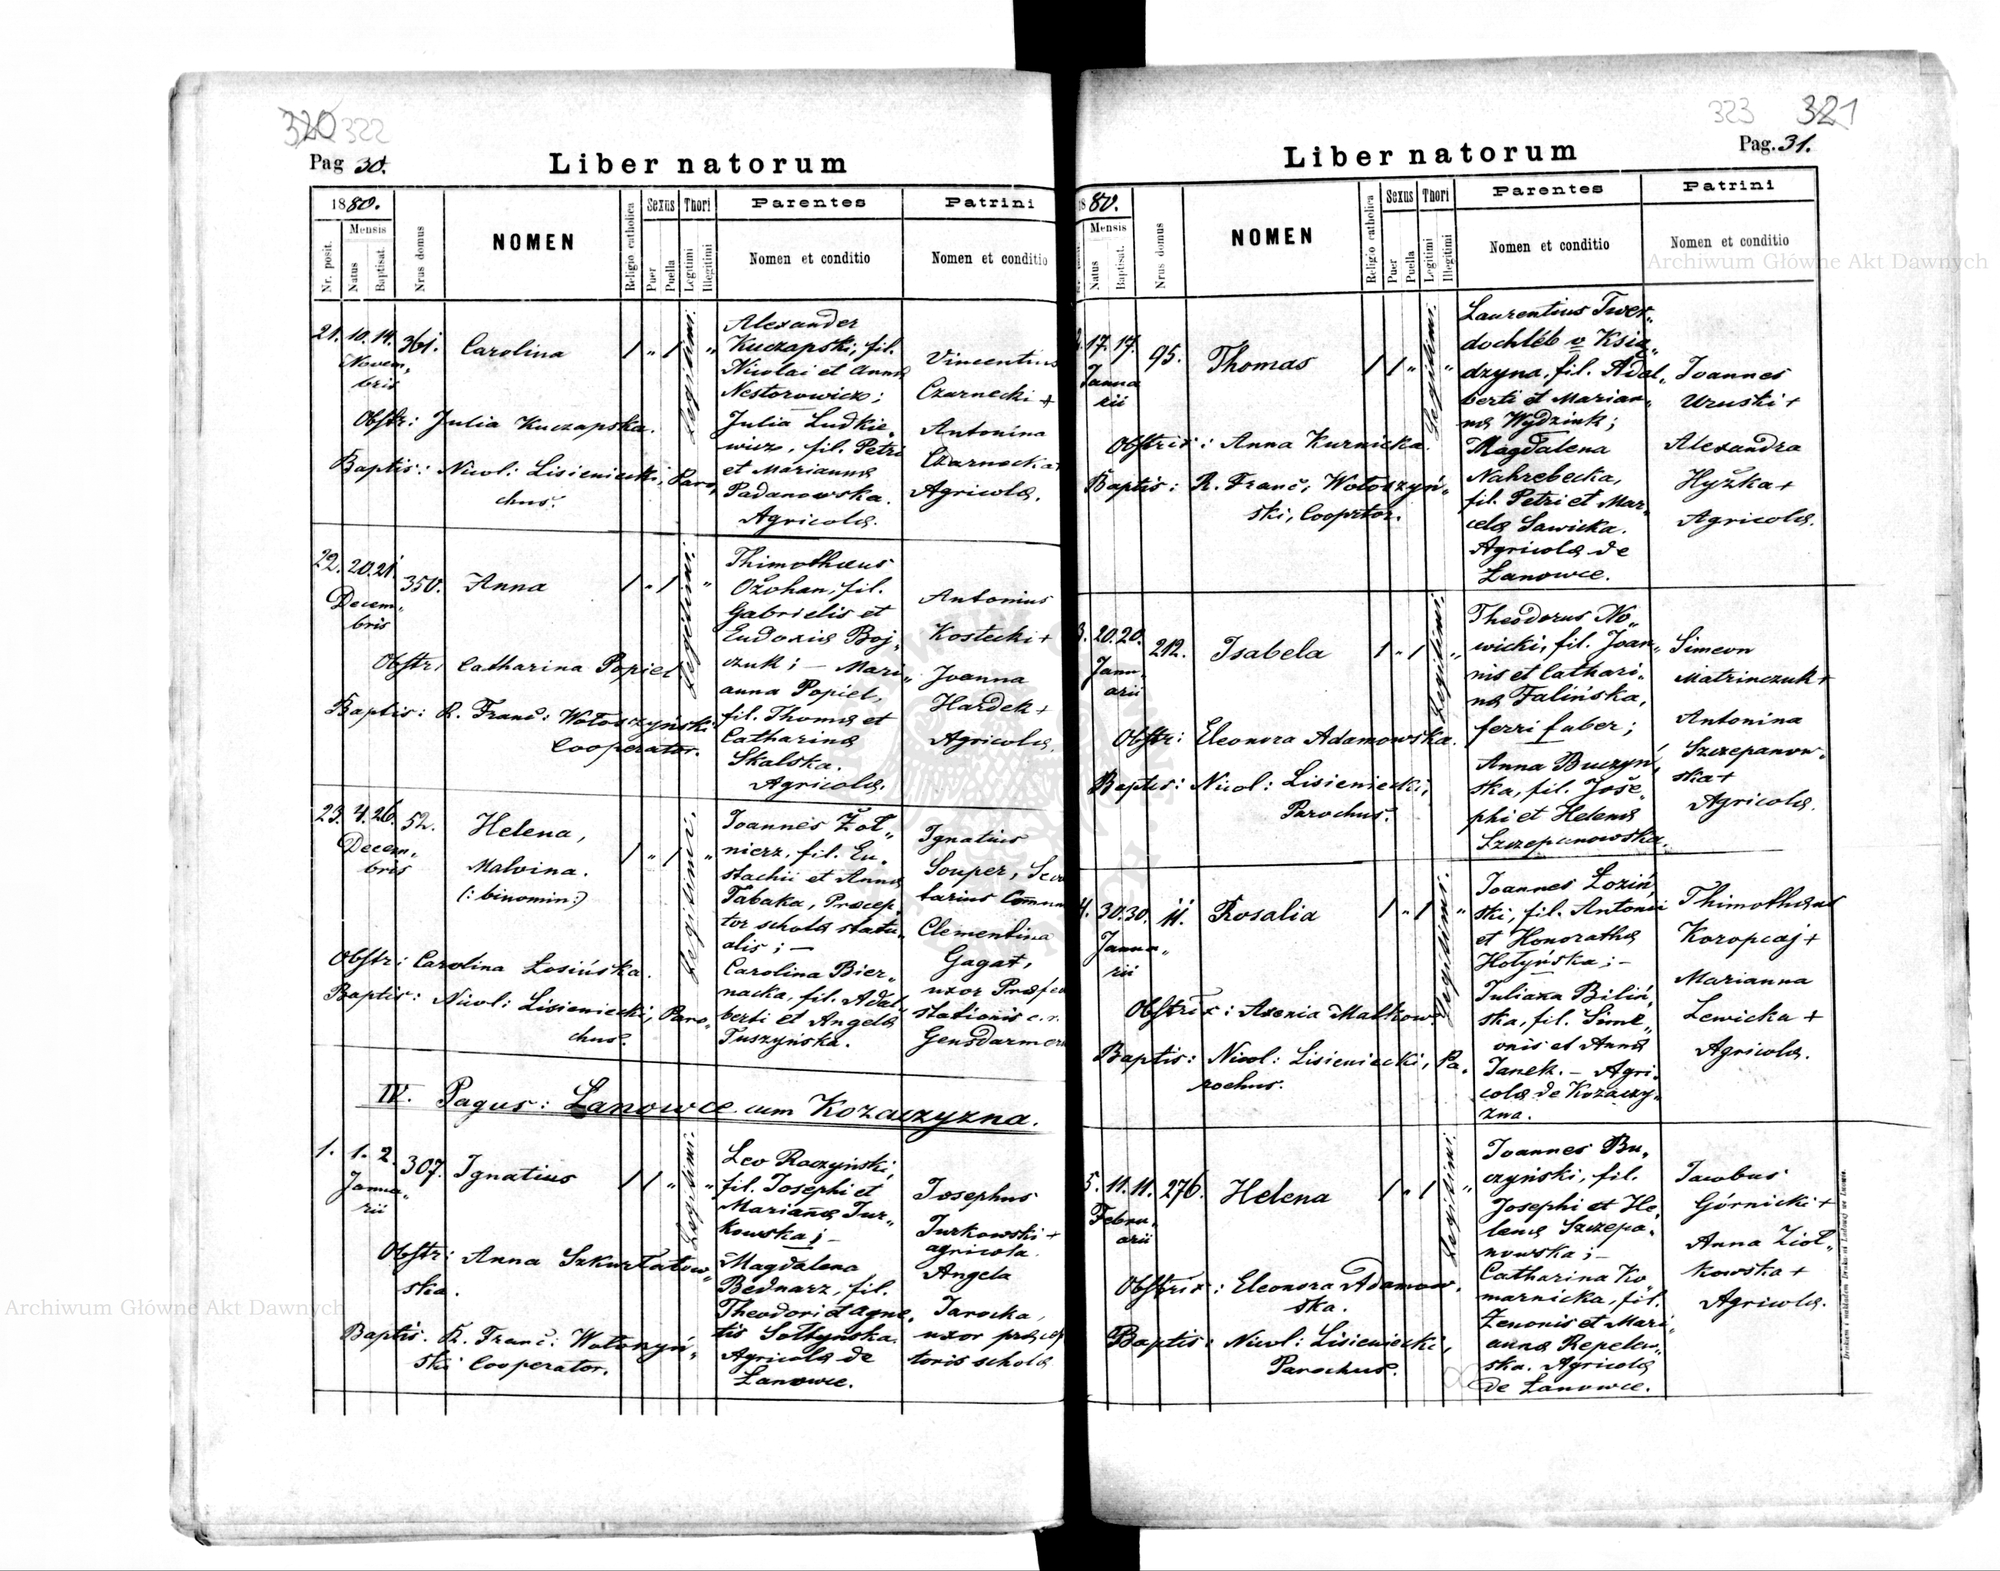 320 322
Pag 30.
Liber natorum
1880.
Nr. posit.
Mensis
Natus
Baptisat.
Nrus domus
NOMEN
Religio catholica
Sexus
Puer
Puella
Thori
Legitimi
Illegitimi
Parentes
Nomen et conditio
Patrini
Nomen et conditio
21. 10. 14. 361. Carolina 1 „ 1 Legitimi. „
Novem„
bris
Obstr: Julia Kuczapska.
Baptis: Nicol: Lisieniecki, Paro„
chus.
Alexander
Kuczapski, fil.
Nicolai et Anna
Nestorowicz;
Julia Ludkie„
wicz, fil. Petri
et Marianna
Padanowska.
Agricolæ.
Vincentius
Czarnecki +
Antonina
Czarnecka
Agricolæ.
22. 20. 21. 350. Anna 1 „ 1 Legitimi. „
Decem„
bris
Obstr: Catharina Popiel
Baptis: R. Franc: Wołoszyński
Cooperator.
Thimothæus
Ožohan, fil.
Gabrielis et
Eudoxia Boj„
czuk; – Mari„
anna Popiel,
fil. Thomæ et
Catharinæ
Skalska.
Agricolæ.
Antonius
Kostecki +
Joanna
Hardek +
Agricolæ.
23. 4. 26. 52. Helena, 1 „ 1 Legitimi. „
Decem„
bris
Malvina.
(: binomin:)
Obstr: Carolina Łosińska.
Baptis: Nicol: Lisieniecki, Paro„
chus.
Joannes Żoł„
nierz, fil. Eu„
stachii et Annæ
Tabaka, Præcep„
tor scholæ statu„
alis; –
Carolina Bier„
nacka, fil. Adal„
berti et Angelæ
Tuszyńska.
Ignatius
Souper, Secre
tarius Commun
Clementina
Gagat,
uxor Præfec
stationis c. r.
Gensdarmeri
IV. Pagus: Łanowce cum Kozaczyzna.
1. 1. 2. 307. Ignatius 1 1 „ Legitimi. „
Janua„
rii
Obstr: Anna Szkurłatow„
ska.
Baptis. R. Franc: Wołoszyń„
ski Cooperator.
Leo Raczyński,
fil. Josephi et
Mariannæ Jur„
kowska; –
Magdalena
Bednarz, fil.
Theodori et Agne„
tis Sołtynska.
Agricolæ de
Łanowce.
Josephus
Jurkowski +
agricola.
Angela
Jarocka,
uxor præcep
toris scholæ
323 321
Pag. 31.
Liber natorum
1880.
Mensis
Natus
Baptisat.
Nrus domus
NOMEN
Religio catholica
Sexus
Puer
Puella
Thori
Legitimi
Illegitimi
Parentes
Nomen et conditio
Patrini
Nomen et conditio
17. 17. 95. Thomas 1 1 „ Legitimi. „
Janua
rii
Obstrix: Anna Kurnicka.
Baptis: R. Franc, Wołoszyń„
ski, Cooprtor.
Laurentius Twer„
dochléb v Księ„
dzyna, fil. Adal„
berti et Marian„
næ Wydzink;
Magdalena
Nahrebecka,
fil. Petri et Mar„
celæ Sawicka.
Agricolæ de
Łanowce.
Joannes
Uruski +
Alexandra
Hyżka +
Agricolæ.
3. 20. 20. 212. Isabela 1 „ 1 Legitimi. „
Janu„
arii
Obstr: Eleonora Adamowska.
Baptis: Nicol: Lisieniecki,
Parochus.
Theodorus No„
wicki, fil. Joan„
nis et Cathari„
næ Falińska,
ferri faber;
Anna Buczyń„
ska, fil. Jose„
phi et Helenæ
Szczepanowska.
Simeon
Matrinczuk +
Antonina
Szczepanow„
ska +
Agricolæ.
4. 30. 30. 11. Rosalia 1 „ 1 Legitimi. „
Janua„
rii
Obstrix: Axenia Malkow.
Baptis: Nicol: Lisieniecki, Pa„
rochus.
Joannes Łoziń„
ski, fil. Antonii
et Honorathæ
Hołyńska; –
Juliana Biliń„
ska, fil. Sime„
onis et Annæ
Janek. – Agri„
colæ de Kozaczy„
zna.
Thimothæus
Koropcaj +
Marianna
Lewicka +
Agricolæ.
5. 11. 11. 276. Helena 1 „ 1 Legitimi. „
Febru„
arii
Obstrix: Eleonora Adamow„
ska.
Baptis: Nicol: Lisieniecki,
Parochus.
Joannes Bu„
czyński, fil.
Josephi et He„
lenæ Szczepa„
nowska; –
Catharina Ko„
marnicka, fil.
Zenonis et Mari„
annæ Repelew„
ska. Agricolæ
de Łanowce.
Jacobus
Górnicki +
Anna Zioł„
kowska +
Agricolæ.
Archiwum Główne Akt Dawnych
Archiwum Główne Akt Dawnych